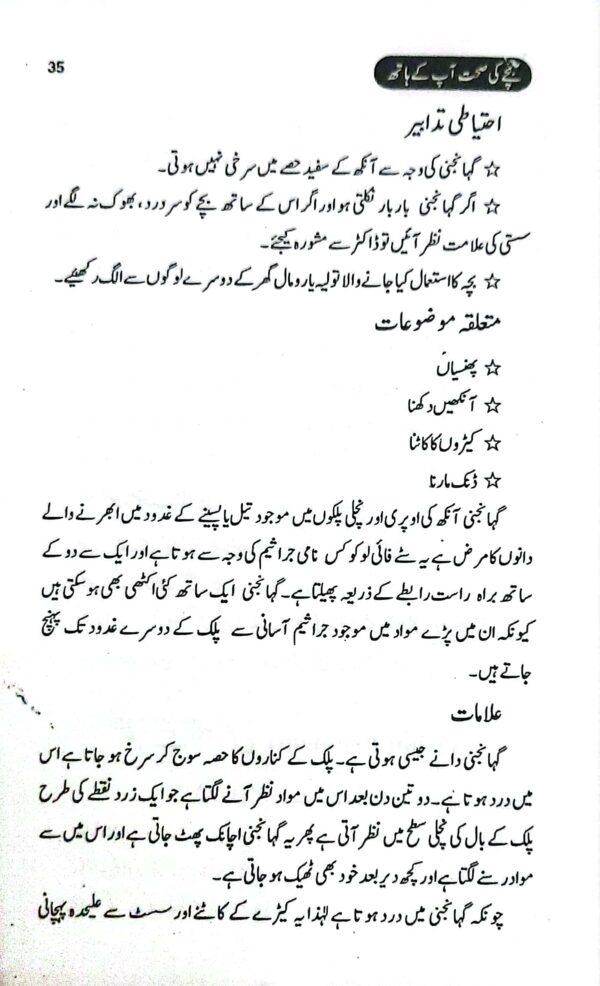 بچے کی صحت آپ کے ہاتھ
35
احتیاطی تدابیر
☆ گہانجنی کی وجہ سے آنکھ کے سفید حصے میں سرخی نہیں ہوتی۔
☆ اگر گہانجنی بار بار نکلتی ہو اور اگر اس کے ساتھ بچے کو سر درد، بھوک نہ لگے اور
سستی کی علامت نظر آئیں تو ڈاکٹر سے مشورہ کیجئے۔
☆ بچہ کا استعمال کیا جانے والا تولیہ یا رومال گھر کے دوسرے لوگوں سے الگ رکھئیے۔
متعلقہ موضوعات
☆ پھنسیاں
☆ آنکھیں دکھنا
☆ کیڑوں کا کاٹنا
☆ ڈنک مارنا
گہانجنی آنکھ کی اوپری اور نچلی پلکوں میں موجود تیل یا پسینے کے غدود میں ابھرنے والے
دانوں کا مرض ہے یہ سٹے فائی لوکوکس نامی جراثیم کی وجہ سے ہوتا ہے اور ایک سے دو کے
ساتھ براہ راست رابطے کے ذریعہ پھیلتا ہے۔ گہانجنی ایک ساتھ کئی اکٹھی بھی ہو سکتی ہیں
کیونکہ ان میں پڑے مواد میں موجود جراثیم آسانی سے پلک کے دوسرے غدود تک پہنچ
جاتے ہیں۔
علامات
گہانجنی دانے جیسی ہوتی ہے۔ پلک کے کناروں کا حصہ سوج کر سرخ ہو جاتا ہے اس
میں درد ہوتا ہے۔ دو تین دن بعد اس میں مواد نظر آنے لگتا ہے جو ایک زرد نقطے کی طرح
پلک کے بال کی نچلی سطح میں نظر آتی ہے پھر یہ گہانجنی اچانک پھٹ جاتی ہے اور اس میں سے
مواد رسنے لگتا ہے اور کچھ دیر بعد خود بھی ٹھیک ہو جاتی ہے۔
چونکہ گہانجنی میں درد ہوتا ہے لہٰذا یہ کیڑے کے کاٹنے اور سسٹ سے علیحدہ پہچانی